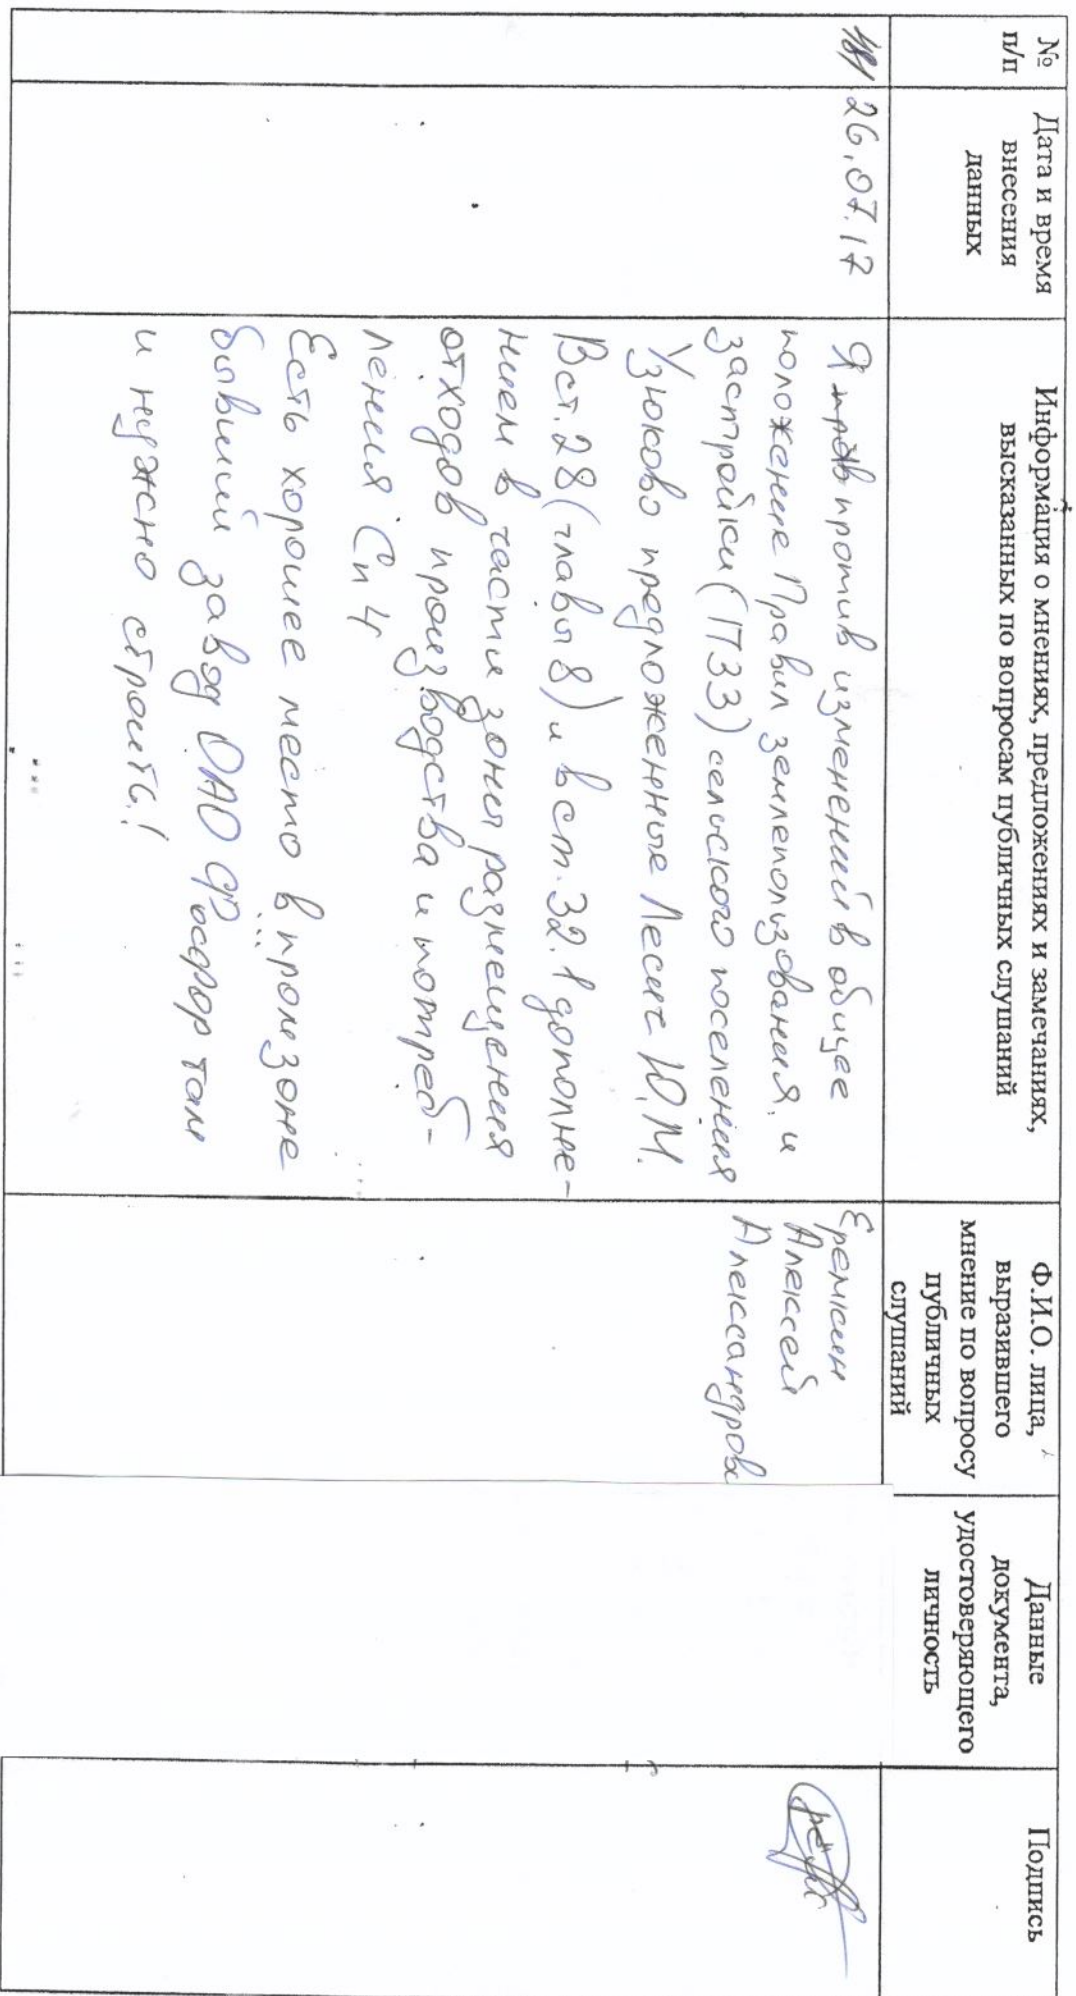 №
п/п
Дата и время
внесения
данных
Информация о мнениях, предложениях и замечаниях,
высказанных по вопросам публичных слушаний
Ф.И.О. лица,
выразившего
мнение по вопросу
публичных
слушаний
Данные
документа,
удостоверяющего
личность
Подпись
26.07.17
Я против изменений в общее
положение Правил землепользования и
застройки (ПЗЗ) сельского поселения
Узюково предложенные Лесите Ю.М.
В ст. 28 (главы 8) и в ст. 32.1 дополне-
нием в части зоны размещения
отходов производства и потреб-
ления Сп 4
Есть хорошее место в промзоне
бывший завод ОАО Фосфор там
и нужно строить!
Еремкин
Алексей
Александров